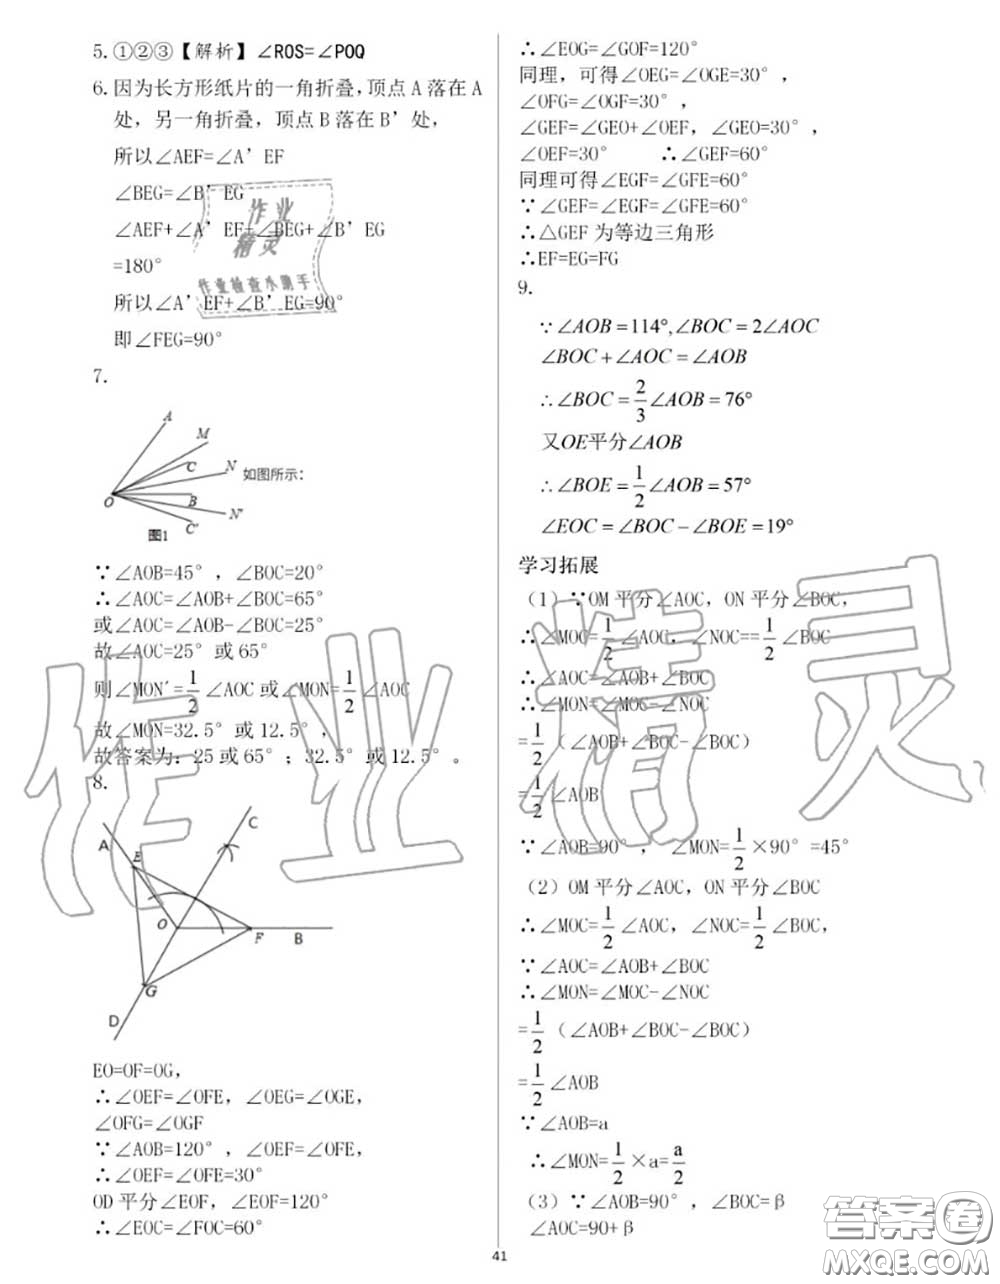 5. ①②③【解析】∠ROS=∠POQ
6. 因为长方形纸片的一角折叠,顶点 A 落在 A
处,另一角折叠,顶点 B 落在 B’处,
所以∠AEF=∠A’EF
∠BEG=∠B’EG
∠AEF+∠A’EF+∠BEG+∠B’EG
=180°
所以∠A’EF+∠B’EG=90°
即∠FEG=90°
7.
A
M
C
N
如图所示:
O
B
N'
C'
图1
∵∠AOB=45°,∠BOC=20°
∴∠AOC=∠AOB+∠BOC=65°
或∠AOC=∠AOB-∠BOC=25°
故∠AOC=25°或 65°
则∠MON′=1/2∠AOC 或∠MON=1/2∠AOC
故∠MON=32.5°或 12.5°,
故答案为:25 或 65°;32.5°或 12.5°。
8.
C
A
E
O
F
B
G
D
EO=OF=OG,
∴∠OEF=∠OFE, ∠OEG=∠OGE,
∠OFG=∠OGF
∵∠AOB=120°,∠OEF=∠OFE,
∴∠OEF=∠OFE=30°
OD 平分∠EOF,∠EOF=120°
∴∠EOC=∠FOC=60°
∴∠EOG=∠GOF=120°
同理,可得∠OEG=∠OGE=30°,
∠OFG=∠OGF=30°,
∠GEF=∠GEO+∠OEF, ∠GEO=30°,
∠OEF=30° ∴∠GEF=60°
同理可得∠EGF=∠GFE=60°
∵∠GEF=∠EGF=∠GFE=60°
∴△GEF 为等边三角形
∴EF=EG=FG
9.
∵∠AOB=114°,∠BOC=2∠AOC
∠BOC+∠AOC=∠AOB
∴∠BOC=2/3∠AOB=76°
又OE平分∠AOB
∴∠BOE=1/2∠AOB=57°
∠EOC=∠BOC-∠BOE=19°
学习拓展
(1)∵OM 平分∠AOC, ON 平分∠BOC,
∴∠MOC=1/2∠AOC, ∠NOC==1/2∠BOC
∴∠AOC=∠AOB+∠BOC
∴∠MON=∠MOC-∠NOC
=1/2(∠AOB+∠BOC-∠BOC)
=1/2∠AOB
∵∠AOB=90°, ∠MON=1/2×90°=45°
(2)OM 平分∠AOC, ON 平分∠BOC
∴∠MOC=1/2∠AOC, ∠NOC=1/2∠BOC,
∵∠AOC=∠AOB+∠BOC
∴∠MON=∠MOC-∠NOC
=1/2(∠AOB+∠BOC-∠BOC)
=1/2∠AOB
∵∠AOB=a
∴∠MON=1/2×a=a/2
(3)∵∠AOB=90°,∠BOC=β
∠AOC=90+β
41
作业
精灵
作业检查小助手
作业精灵
答案圈
MXQE.COM